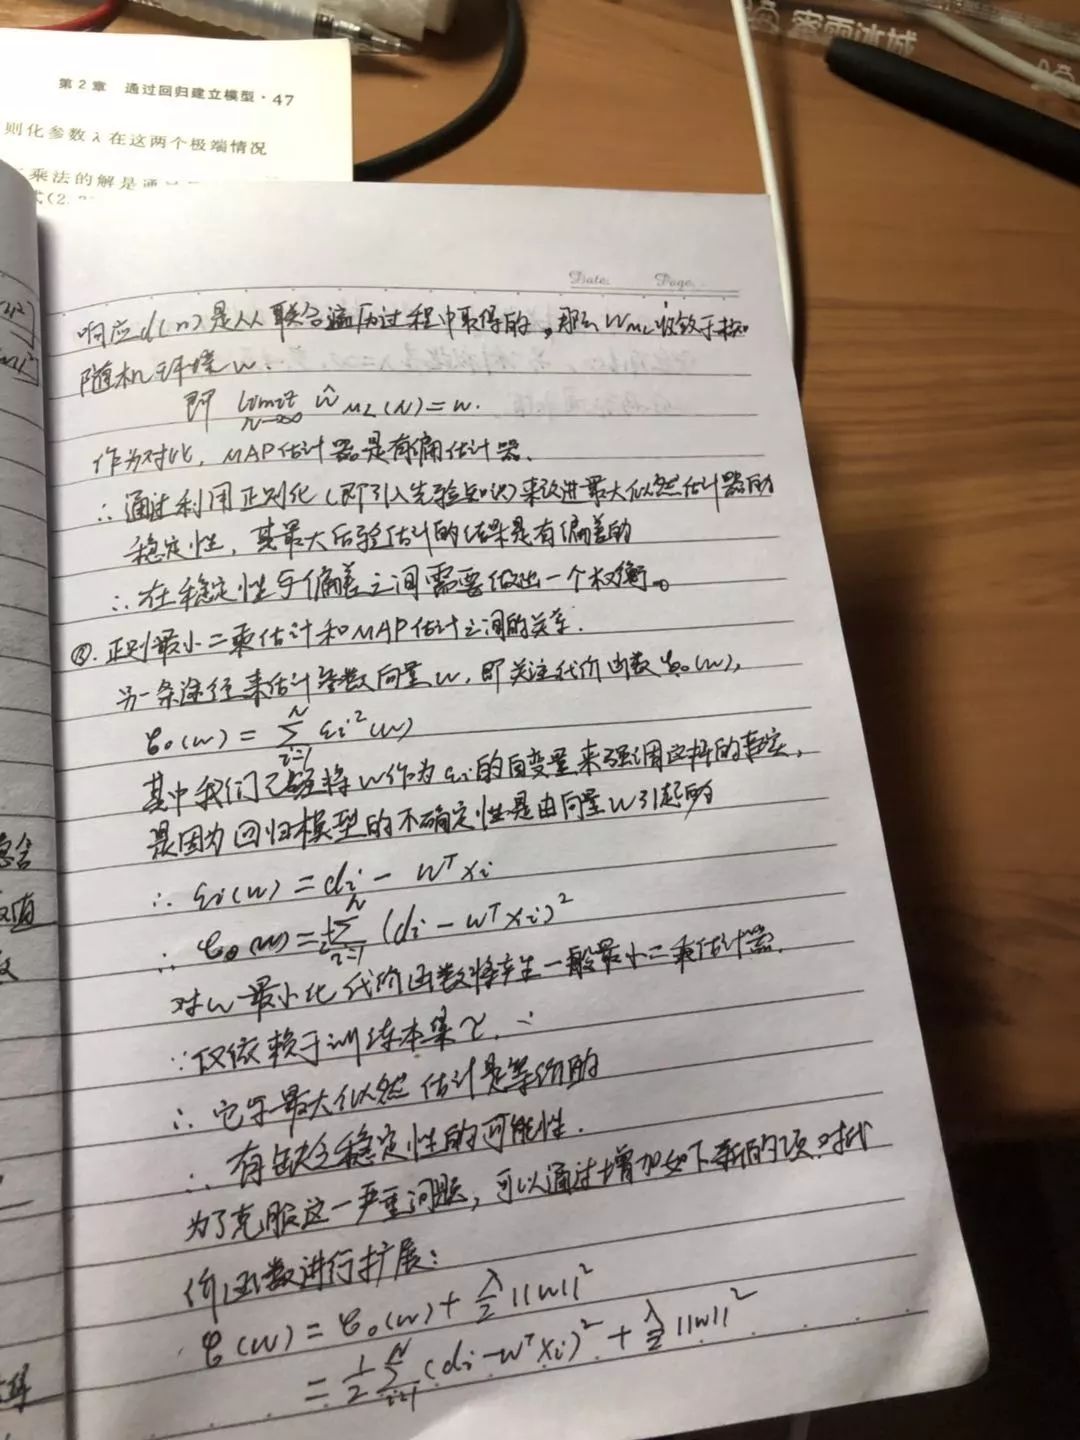 蜜雪冰城
第2章 通过回归建立模型·47
则化参数λ在这两个极端情况
乘法的解是通
式(2.
Date: Page.
响应d(n)是从联合遍历过程中取得的,那么WML收敛于
随机环境w.
即 limit n→∞ ŵML(N)=w.
作为对比, MAP估计器是有偏估计器.
∴通过利用正则化(即引入先验知识)来改进最大似然估计器的
稳定性, 其最大后验估计的结果是有偏差的
∴在稳定性与偏差之间需要做出一个权衡。
正则最小二乘估计和MAP估计之间的关系.
另一条途径来估计参数向量w, 即关注代价函数ℰ₀(w),
ℰ₀(w) = Σᵢ₌₁ᴺ εᵢ²(w)
其中我们已经将w作为εᵢ的自变量来强调这样的事实,
是因为回归模型的不确定性是由向量w引起的
∴ εᵢ(w) = dᵢ - wᵀxᵢ
∴ ℰ₀(w) = ½Σᵢ₌₁ᴺ (dᵢ - wᵀxᵢ)²
对w最小化代价函数将产生一般最小二乘估计器.
∵仅依赖于训练本集τ.
∴它与最大似然估计是等价的
∴有缺乏稳定性的可能性.
为了克服这一严重问题, 可以通过增加如下新的项对代
价函数进行扩展:
ℰ(w) = ℰ₀(w) + λ/2 ||w||²
= ½ Σᵢ₌₁ᴺ (dᵢ-wᵀxᵢ)² + λ/2 ||w||²